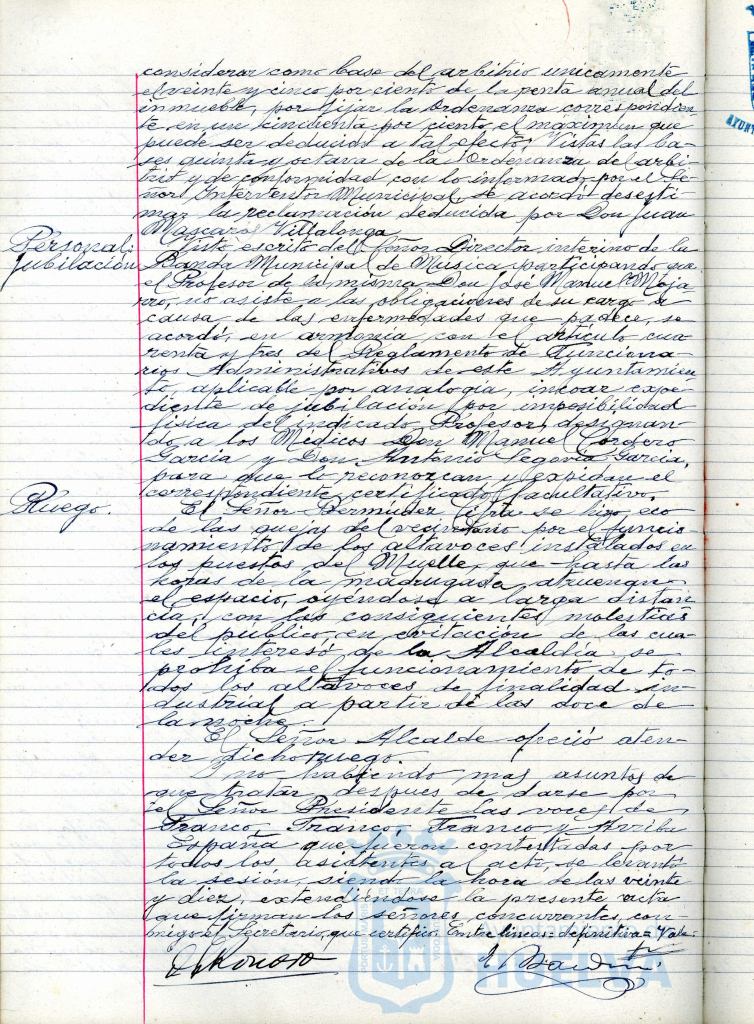 considerar como base del arbitrio unicamente
el veinte y cinco por ciento de la renta anual del
inmueble, por fijar la Ordenanza correspondien
te, en un cincuenta por ciento, el máximun que
puede ser deducido a tal efecto. Vistas las ba-
ses quinta y octava de la Ordenanza del arbi-
trio y de conformidad con lo informado por el Se
ñor Interventor Municipal, se acordó desesti
mar la reclamación deducida por Don Juan
Mascarós Villalonga.
Personal:
jubilación
Visto escrito del Señor Director interino de la
Banda Municipal de Música participando que
el Profesor de la misma Don José Manuel Moja
rro, no asiste a las obligaciones de su cargo a
causa de las enfermedades que padece, se
acordó, en armonía con el artículo cua
renta y tres del Reglamento de Funciona
rios Administrativos de este Ayuntamien
to, aplicable por analogía, incoar expe-
diente de jubilación por imposibilidad
física del indicado Profesor, designan-
do a los Médicos Don Manuel Cordero
García y Don Antonio Segovia García,
para que le reconozcan y expidan el
correspondiente certificado facultativo.
Ruego.
El Señor Bermudez se hizo eco
de las quejas del vecindario por el funcio-
namiento de los altavoces instalados en
los puestos del Muelle, que hasta las
horas de la madrugada atruenan
el espacio, oyéndose a larga distan-
cia, con las consiguientes molestias
del publico, en evitación de las cua-
les interesó de la Alcaldía se
prohiba el funcionamiento de to-
dos los altavoces de finalidad in-
dustrial a partir de las doce de
la noche.
El Señor Alcalde ofreció aten-
der dicho ruego.
Y no habiendo mas asuntos de
que tratar, despues de darse por
el Señor Presidente las voces de
Franco, Franco, Franco y Arriba
España que fueron contestadas por
todos los asistentes al acto, se levantó
la sesión, siendo la hora de las veinte
y diez, extendiéndose la presente acta
que firman los señores concurrentes, con
migo el Secretario, que certifico. Entre lineas = definitiva = Vale.
HUELVA